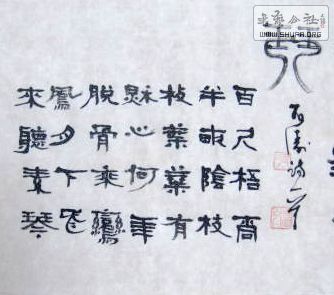 书艺公社
WWW.SHUFA.ORG
百尺梧桐
半畝陰枝
枝葉葉有
秌心何年
脱骨乘鸞
鳳月下飛
來聽素琴
石濤詩一首